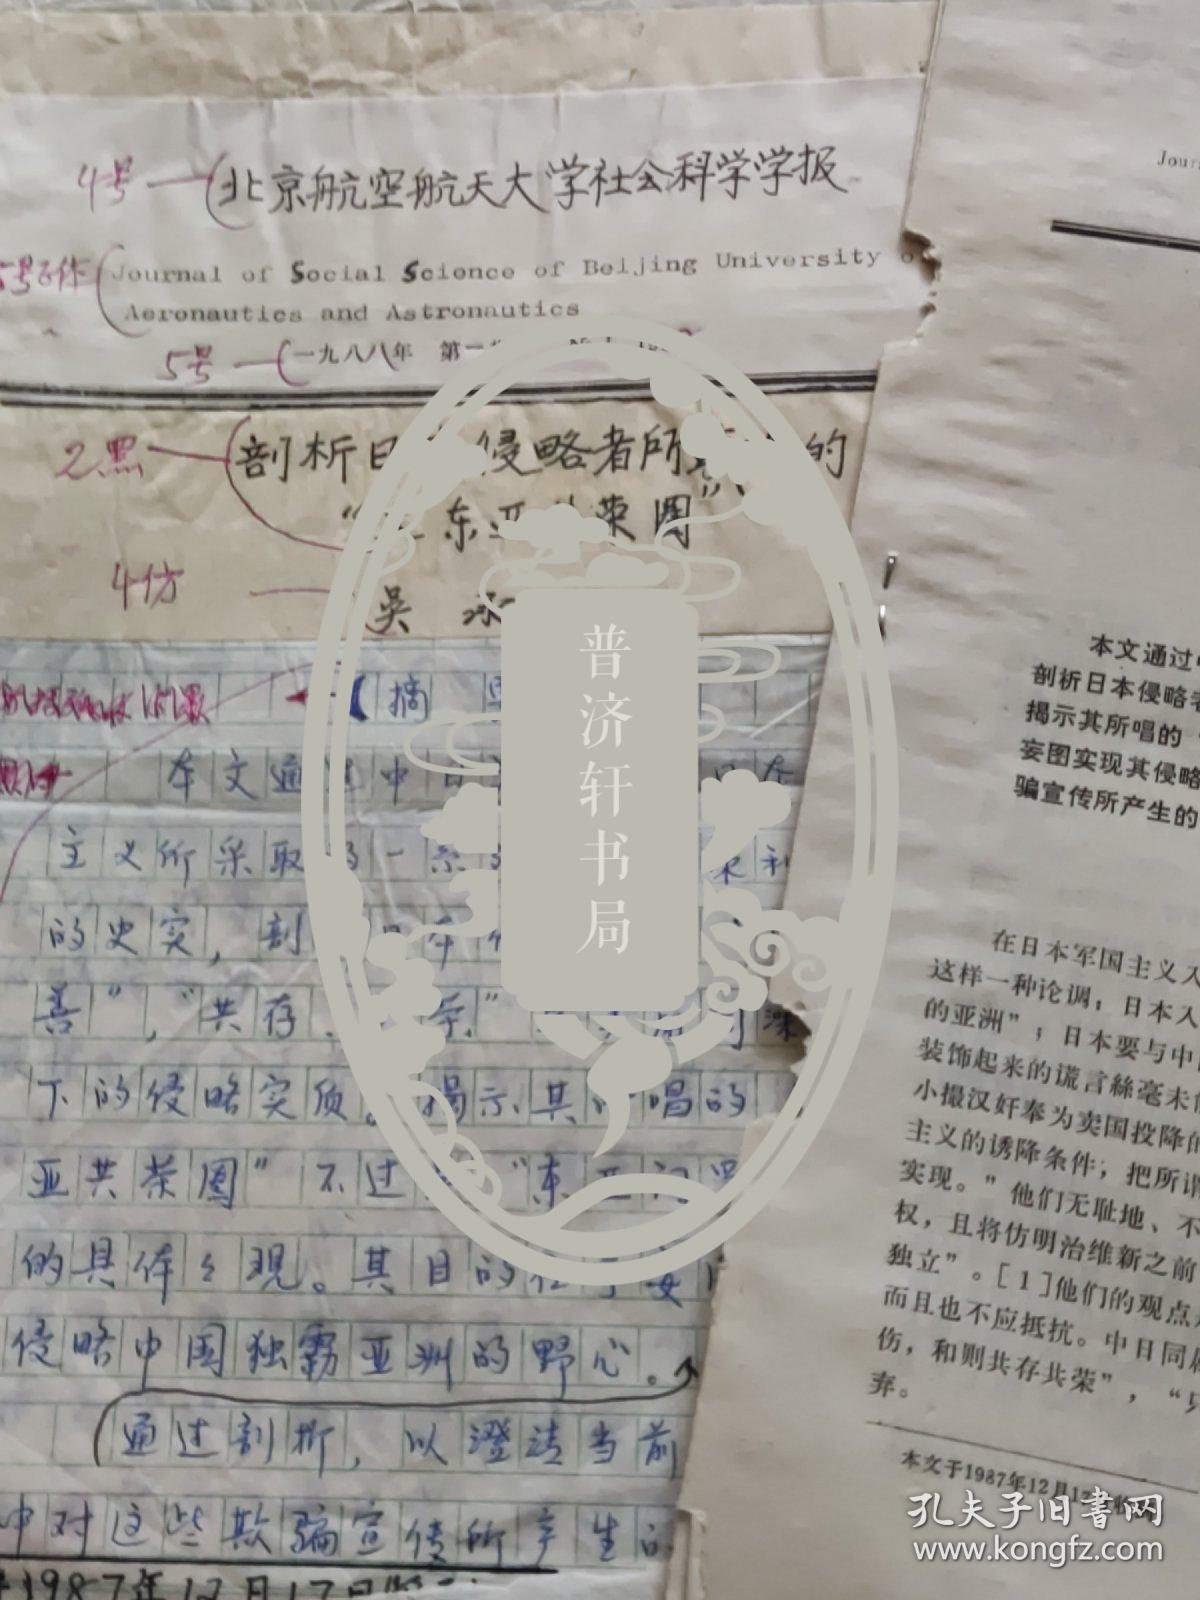 4号
北京航空航天大学社会科学学报
Journal of Social Science of Beijing University o
Aeronautics and Astronautics
5号
一九八八年 第一
2黑
剖析日 侵略者所 的
“ 东亚 荣圈”
4仿
吴
摘
本文通过中日
主义所采取的一系
的史实，剖
善”，“共存、 荣”
下的侵略实质。揭示其所唱的
亚共荣圈”不过 “东亚
的具体体现。其目的在于妄
侵略中国独霸亚洲的野心。
通过剖析，以澄清当前
中对这些欺骗宣传所产生的
1987年12月17日
Jour
本文通过
剖析日本侵略者
揭示其所唱的
妄图实现其侵略
骗宣传所产生的
在日本军国主义入
这样一种论调：日本入
的亚洲”；日本要与中
装饰起来的谎言絲毫未
小撮汉奸奉为卖国投降的
主义的诱降条件，把所谓
实现。”他们无耻地、不
权，且将仿明治维新之前
独立”。[1]他们的观点
而且也不应抵抗。中日同
伤，和则共存共荣”，“只
弃。
本文于1987年12月17
普济轩书局
孔夫子旧书网
www.kongfz.com